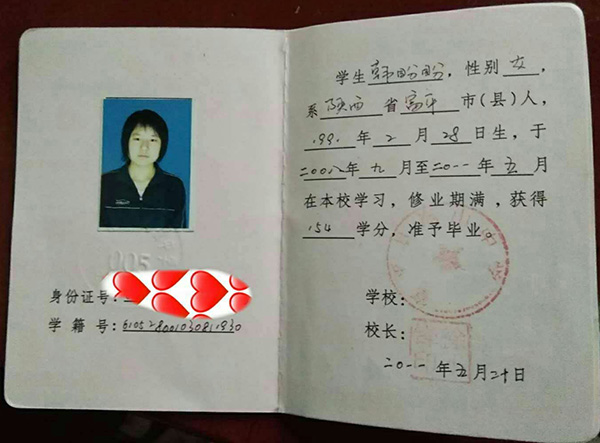 005
身份证号:
学籍号:610528001030811930
学生韩盼盼,性别女,
系陕西省富平市(县)人,
199 年2月28日生,于
二〇〇八年九月至二〇一一年五月
在本校学习,修业期满,获得
154学分,准予毕业。
学校:
校长:
二〇一一年五月二十日